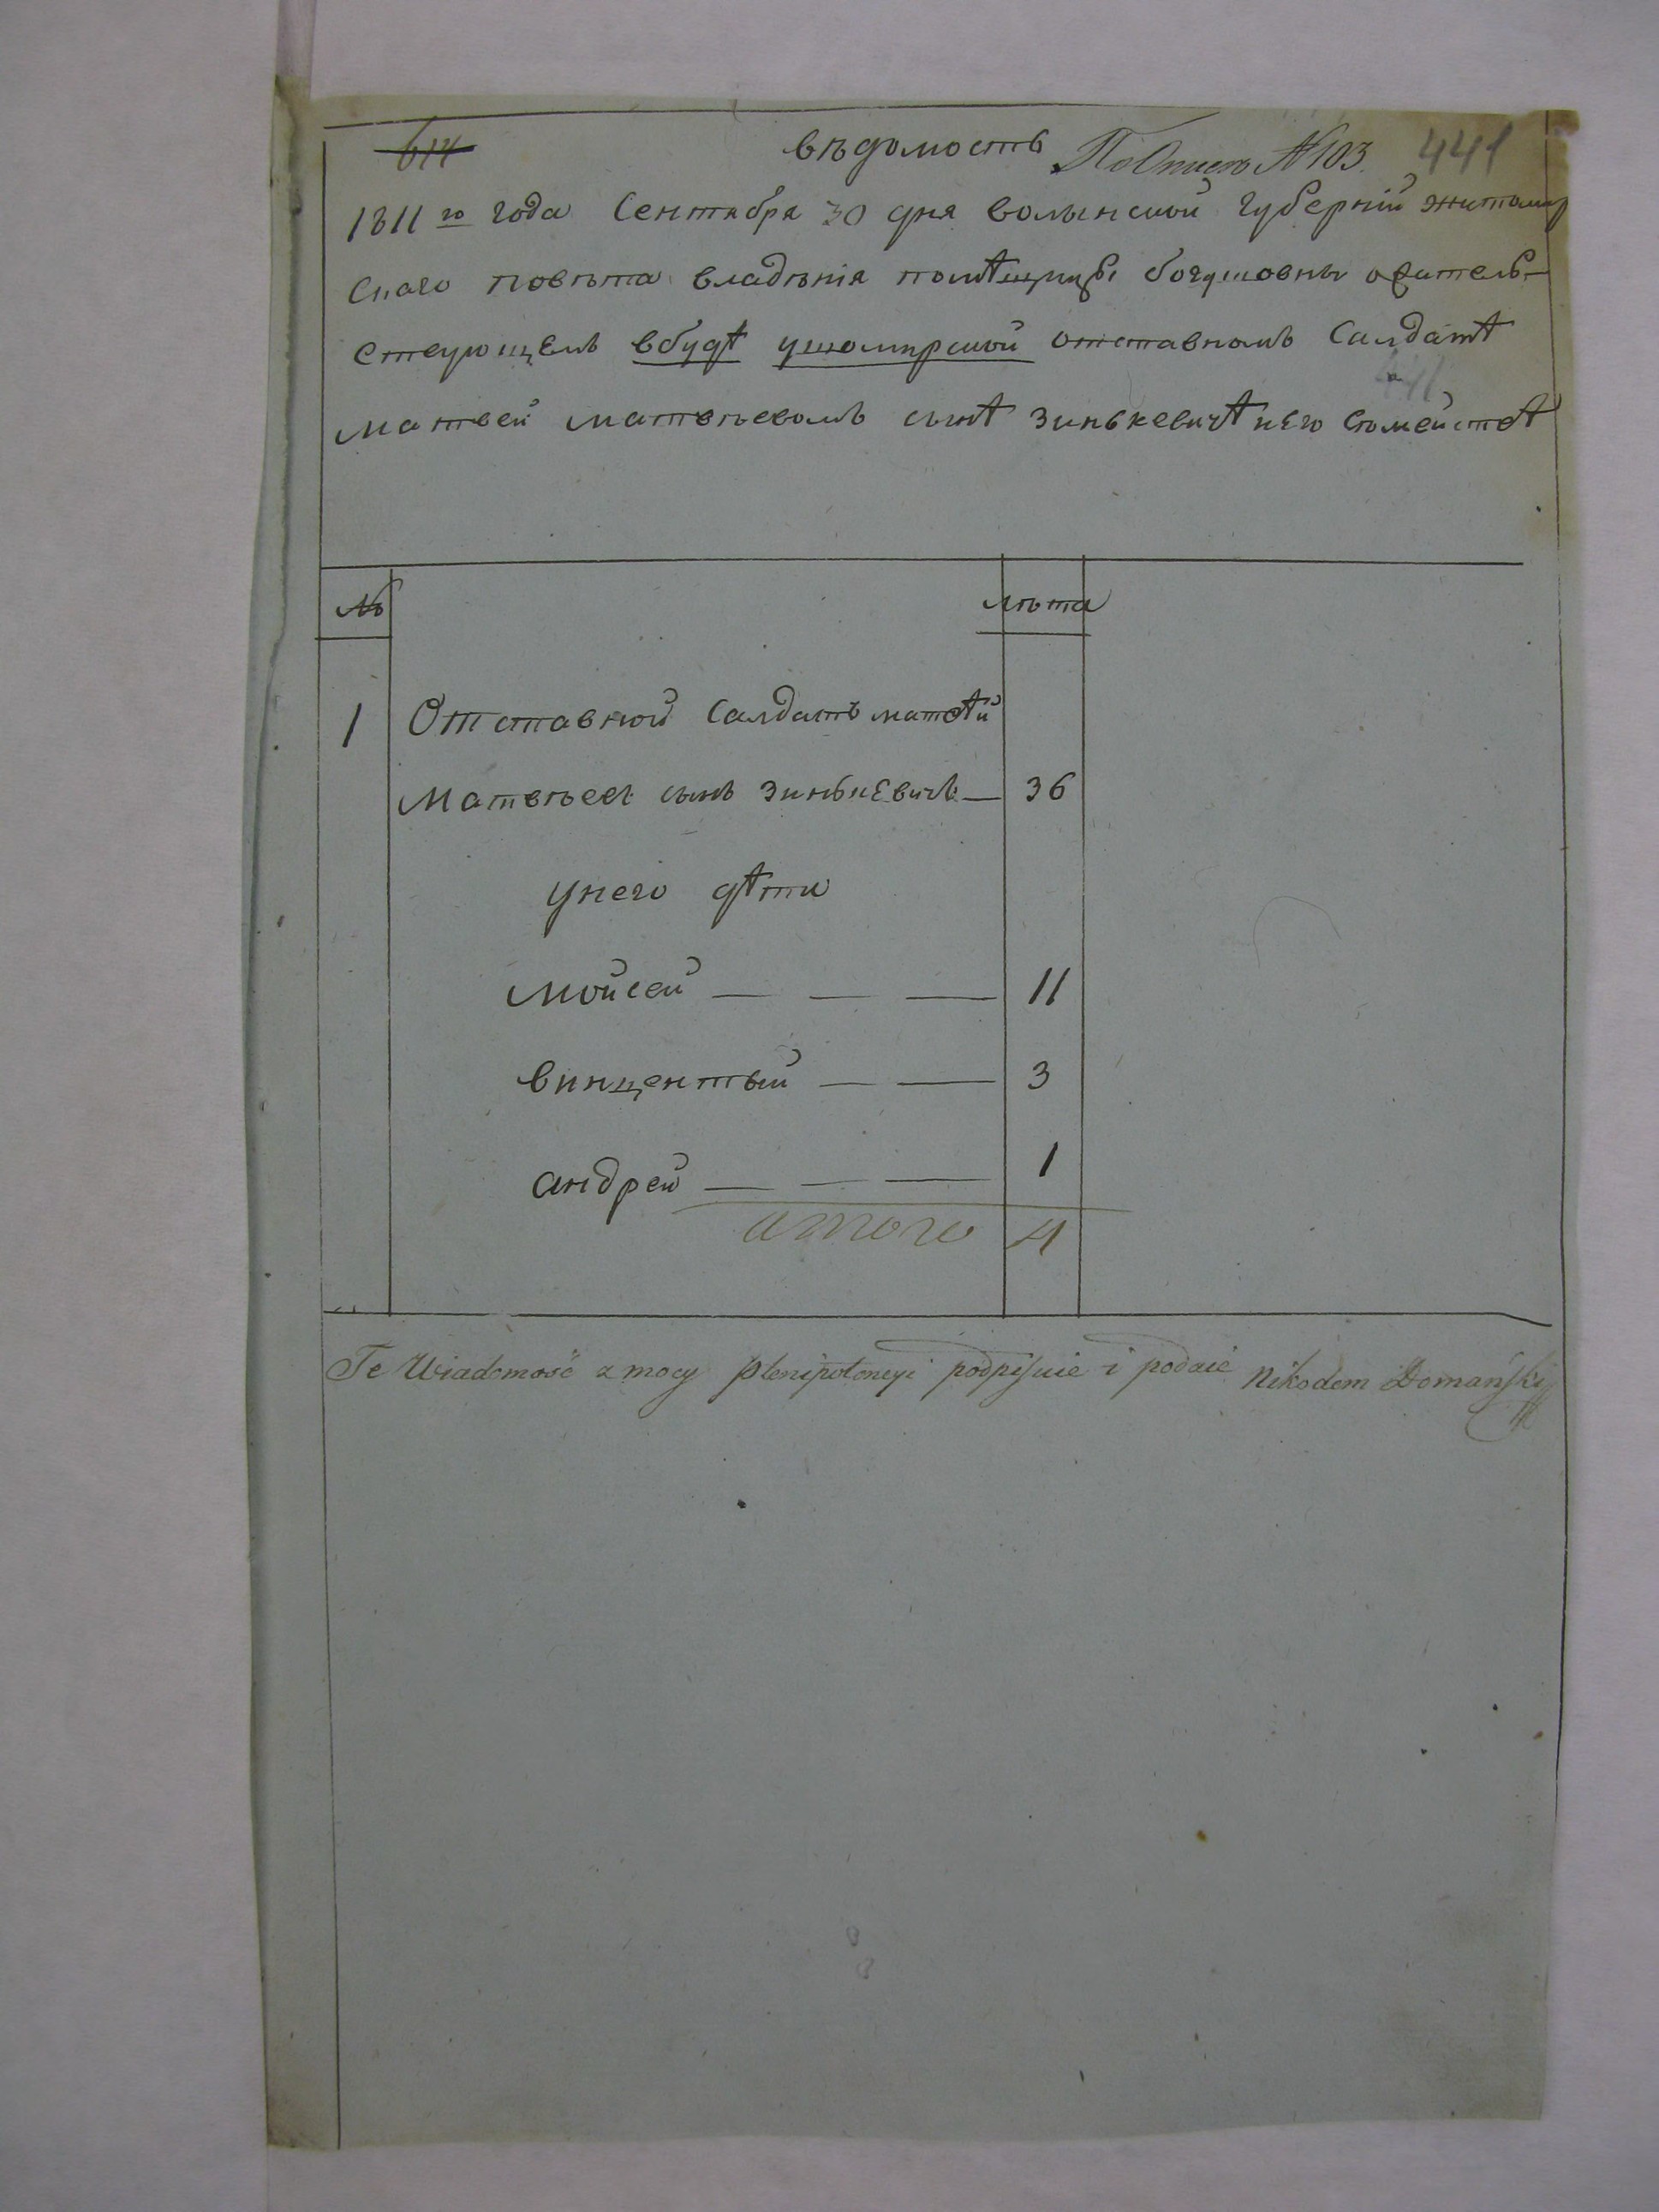 614 вѣдомость По Описѣ №103. 441
1811го года Сентября 30 дня волынской губерніи житомир
скаго повѣта владѣнія помѣщицы богушовны ожитель-
ствующемъ вбудѣ ушомирской отставномъ Салдатѣ
матвей матвѣевомъ сынѣ зинькевичѣ иего Семействѣ
№ лѣта
1 Отставной Салдатъ матвѣй
матвѣевъ сынъ зинькевичъ — 36
унего дѣти
мойсей — — — 11
винцентый — — 3
андрей — — — 1
итого 4
Te Wiadomość z mocy plenipotencyi podpisuie i podaie Nikodem Domański